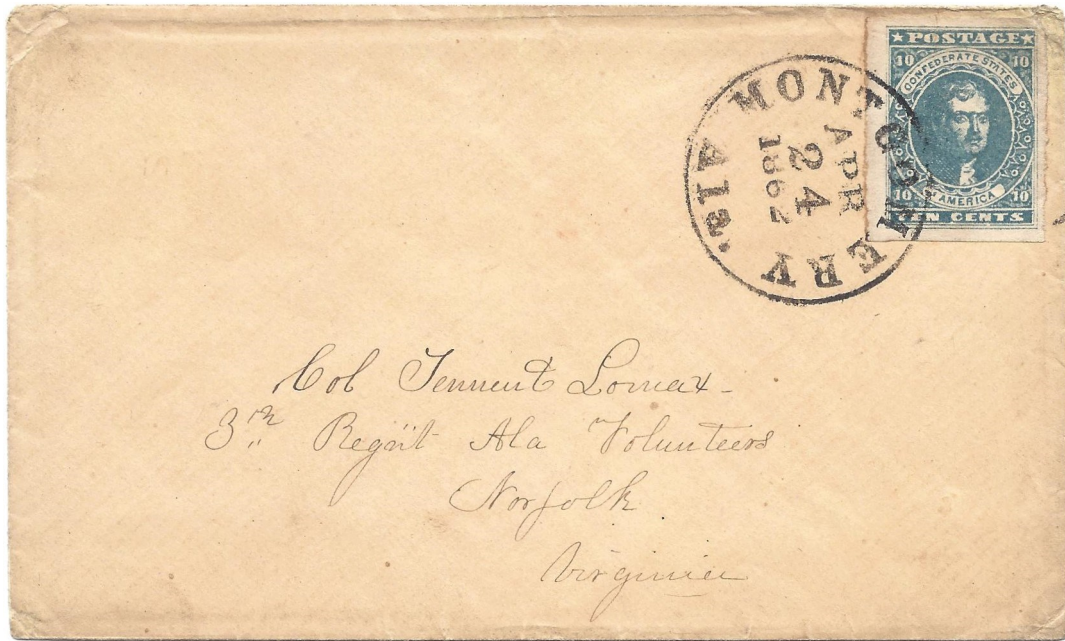 ★ POSTAGE ★
10 10
CONFEDERATE STATES
AMERICA
10 10
TEN CENTS
MONTGOMERY Ala.
APR
24
1862
Col Tennent Lomax
3rd Regmt Ala Volunteers
Norfolk
Virginia